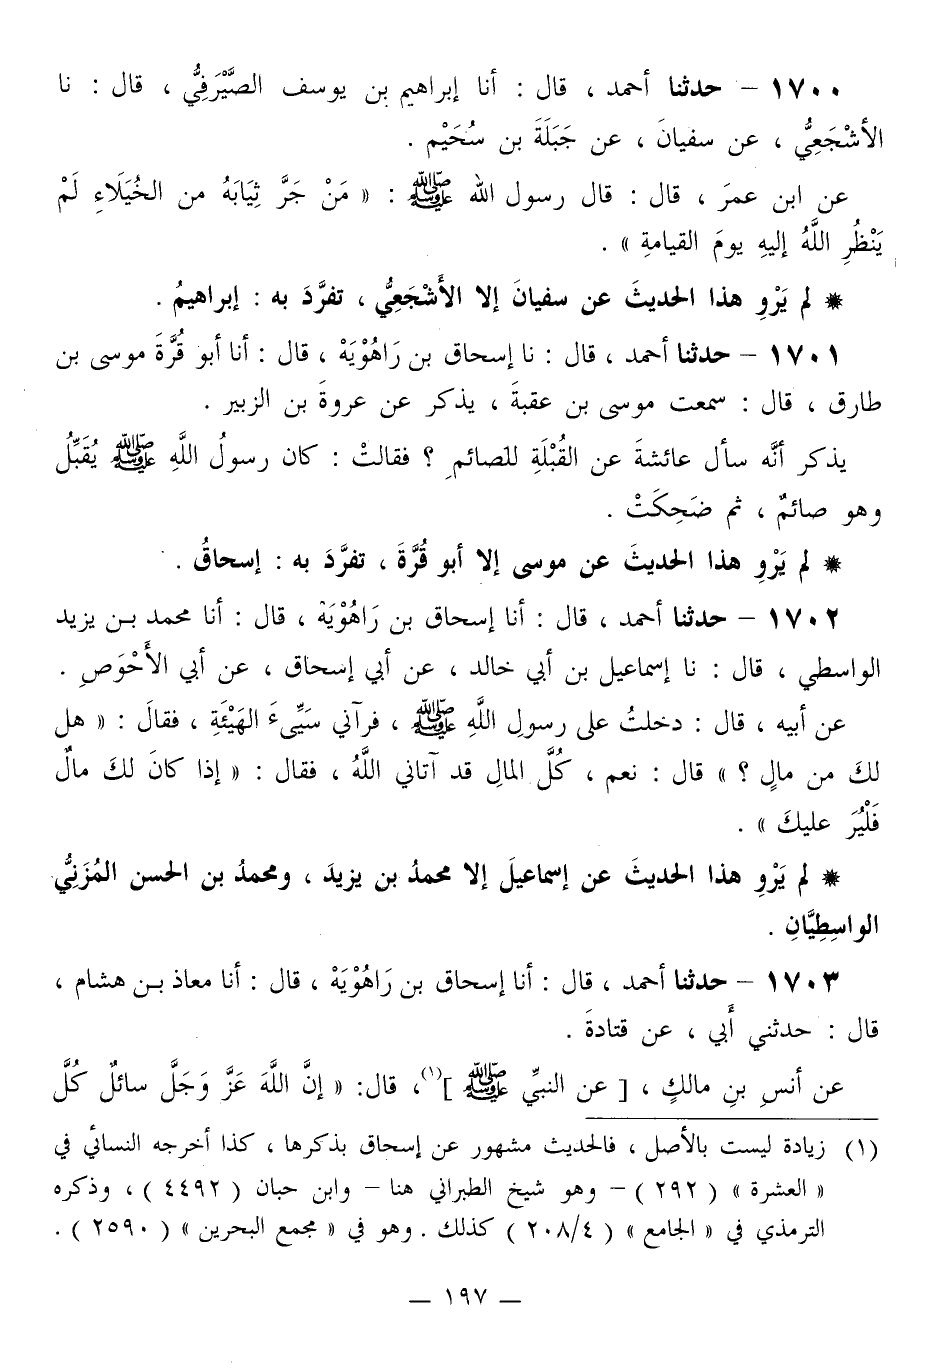 ١٧٠٠ – حدثنا أحمد ، قال : أنا إبراهيم بن يوسف الصَّيْرَفِيُّ ، قال : نا
الأشْجَعِيُّ ، عن سفيانَ ، عن جَبَلَةَ بن سُحَيْم .
عن ابن عمرَ ، قال : قال رسول الله ﷺ : « مَنْ جَرَّ ثِيَابَهُ من الخُيَلَاءِ لَمْ
يَنْظُرِ اللَّهُ إليهِ يومَ القيامةِ » .
* لم يَرْوِ هذا الحديثَ عن سفيانَ إلا الأَشْجَعِيُّ ، تفرَّدَ به : إبراهيمُ .
١٧٠١ – حدثنا أحمد ، قال : نا إسحاق بن رَاهُوْيَهْ ، قال : أنا أبو قُرَّةَ موسى بن
طارق ، قال : سمعت موسى بن عقبةَ ، يذكر عن عروةَ بن الزبير .
يذكر أنَّه سأل عائشةَ عن القُبْلَةِ للصائمِ ؟ فقالتْ : كان رسولُ اللَّهِ ﷺ يُقَبِّلُ
وهو صائمٌ ، ثم ضَحِكَتْ .
* لم يَرْوِ هذا الحديثَ عن موسى إلا أبو قُرَّةَ ، تفرَّدَ به : إسحاقُ .
١٧٠٢ – حدثنا أحمد ، قال : أنا إسحاق بن رَاهُوْيَهْ ، قال : أنا محمد بن يزيد
الواسطي ، قال : نا إسماعيل بن أبي خالد ، عن أبي إسحاق ، عن أبي الأَحْوَصِ .
عن أبيه ، قال : دخلتُ على رسولِ اللَّهِ ﷺ ، فرآني سَيِّىءَ الهَيْئَةِ ، فقالَ : « هل
لكَ من مالٍ ؟ » قال : نعم ، كُلَّ المالِ قد آتاني اللَّهُ ، فقال : « إذا كانَ لكَ مالٌ
فَلْيُرَ عليكَ » .
* لم يَرْوِ هذا الحديثَ عن إسماعيلَ إلا محمدُ بن يزيدَ ، ومحمدُ بن الحسن المُزَنِيُّ
الواسِطِيَّانِ .
١٧٠٣ – حدثنا أحمد ، قال : أنا إسحاق بن رَاهُوْيَهْ ، قال : أنا معاذ بن هشام ،
قال : حدثني أَبي ، عن قتادةَ .
عن أنسِ بنِ مالكٍ ، [ عن النبيِّ ﷺ ](١)، قال: « إنَّ اللَّهَ عَزَّ وَجَلَّ سائلٌ كُلَّ
(١) زيادة ليست بالأصل ، فالحديث مشهور عن إسحاق بذكرها ، كذا أخرجه النسائي في
« العشرة » ( ٢٩٢ ) – وهو شيخ الطبراني هنا – وابن حبان ( ٤٤٩٢ ) ، وذكره
الترمذي في « الجامع » ( ٢٠٨/٤ ) كذلك . وهو في « مجمع البحرين » ( ٢٥٩٠ ) .
— ١٩٧ —